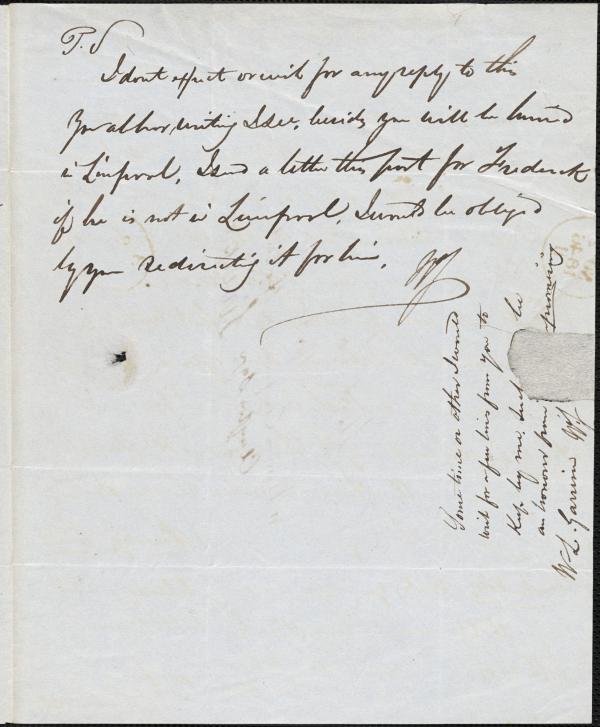 P.S
I dont expect or wish for any reply to this
You abhor writing I see, besides you will be hurried
in Liverpool, I send a letter this post for Frederick
if he is not in Liverpool, I would be obliged
by your redirecting it for him.
Some time or other I would
wish for a few lines from you to
keep by me, such be
an honour from
W L. Garrison